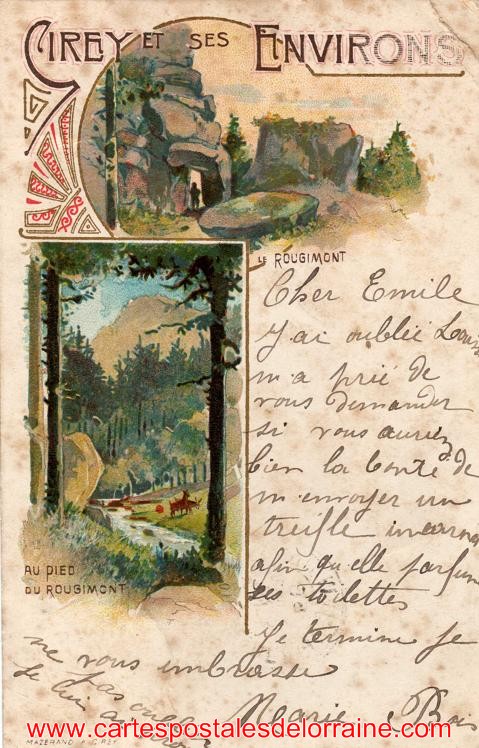 CIREY ET SES ENVIRONS
LE ROUGIMONT
Cher Emile
J'ai oublié Louise
m'a prié de
vous demander
si vous auriez
bien la bonté de
m'envoyer un
treifle incarnat
afin qu'elle parfume
ses toilettes
Je termine je
ne vous embrasse
pas
Marie Bois
AU PIED
DU ROUGIMONT
MAZERAND À CIREY
www.cartespostalesdelorraine.com